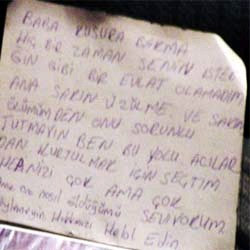 BABA KUSURA BAKMA
HİÇ BİR ZAMAN SENİN İSTED
ĞİN GİBİ BİR EVLAT OLAMADIM
ANA SAKIN ÜZÜLME VE SAKIN
ÖLÜMÜMDEN ONU SORUMLU
TUTMAYIN BEN BU YOLU ACILAR
DAN KURTULMAK İÇİN SEÇTİM
HEPİNİZİ ÇOK AMA ÇOK
SEVİYORUM
nasıl öldüğümü
Hakkınızı Helal Edin